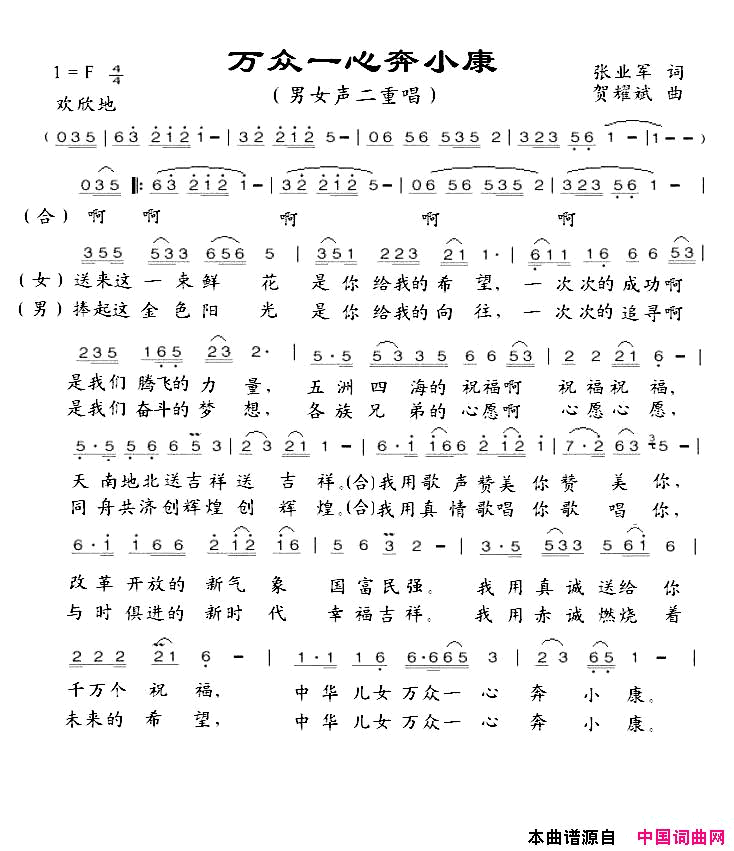 万众一心奔小康
1=F 4/4
（男女声二重唱）
张业军 词
贺耀斌 曲
欢欣地
（035|63 2121-|32 2125-|06 56 5352|323 56 1-|1--）
035‖:63 212 1-|32 212 5-|06 56 535 2|323 56 1-|
（合）啊 啊 啊 啊 啊
355 533 656 5|351 223 21 1·|611 16 66 53|
（女）送来这一束鲜 花 是你给我的希望,一次次的成功啊
（男）捧起这金色阳 光 是你给我的向往,一次次的追寻啊
235 165 23 2·|5·5 533 66 53|2 2 21 6-|
是我们腾飞的力 量, 五洲四海的祝福啊 祝福祝福,
是我们奋斗的梦 想, 各族兄弟的心愿啊 心愿心愿,
5·5 56 65 3|23 21 1-|6·1 166 2 12 1|7·2 63 35-|
天南地北送吉祥送 吉 祥。(合)我用歌声赞美你赞 美你,
同舟共济创辉煌创 辉 煌。(合)我用真情歌唱你歌 唱你,
6·1 166 212 16|56 33 2-|3·5 533 561 6|
改革开放的新气象 国富民强。 我用真诚送给你
与时俱进的新时代 幸福吉祥。 我用赤诚燃烧着
222 21 6-|1·1 16 6·665 3|23 3 65 1|
千万个祝福, 中华儿女万众一心奔小康。
未来的希望, 中华儿女万众一心奔小康。
本曲谱源自 中国词曲网